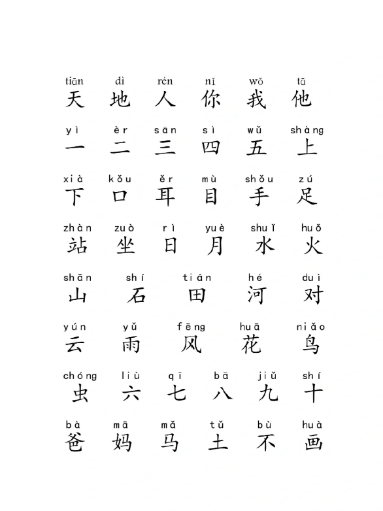 tiān dì rén nǐ wǒ tā
天 地 人 你 我 他
yì èr sān sì wǔ shàng
一 二 三 四 五 上
xià kǒu ěr mù shǒu zú
下 口 耳 目 手 足
zhàn zuò rì yuè shuǐ huǒ
站 坐 日 月 水 火
shān shí tián hé duì
山 石 田 河 对
yún yǔ fēng huā niǎo
云 雨 风 花 鸟
chóng liù qī bā jiǔ shí
虫 六 七 八 九 十
bà mā mǎ tǔ bù huà
爸 妈 马 土 不 画